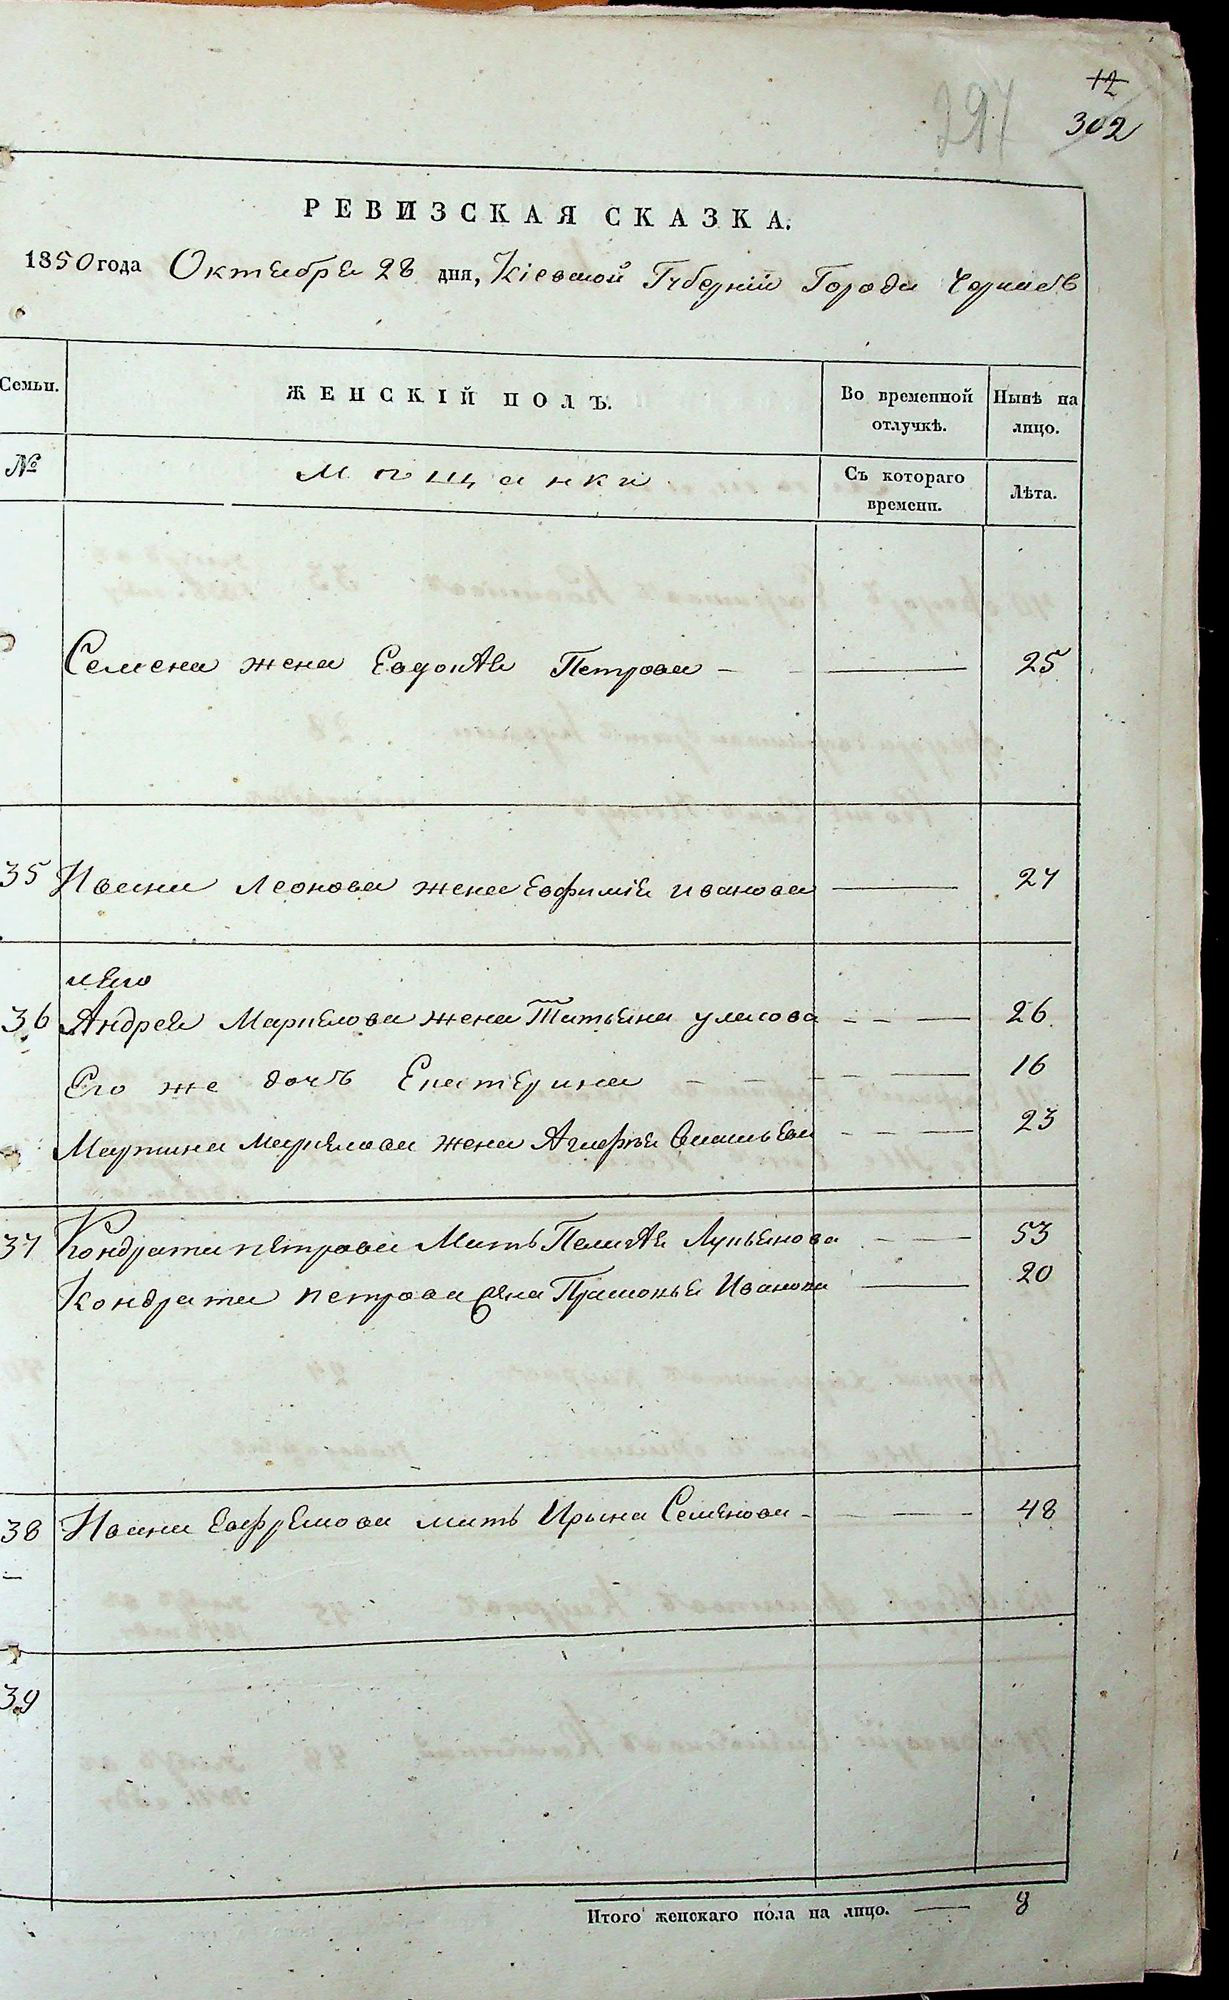 12
302
297
РЕВИЗСКАЯ СКАЗКА.
1850 года Октября 28 дня, Кіевской Губерніи Города Черкасъ
Семьи.
ЖЕНСКІЙ ПОЛЪ.
Во временной отлучкѣ.
Нынѣ на лицо.
№
Мѣщанки
Съ котораго времени.
Лѣта.
Семена жена Евдокія Петрова — 25
35 Ивана Леонова жена Евфимія Иванова — 27
36 Андрея Маркелова жена Татьяна Уласова — 26
Его же дочь Екатерина — 16
Мартина Маркелова жена Агафья Васильева — 23
37 Кондрата Петрова Мать Пелагея Лукьянова — 53
Кондрата Петрова жена Прасковья Иванова — 20
38 Ивана Евфремова мать Ирына Семенова — 48
39
Итого женскаго пола на лицо. — 8